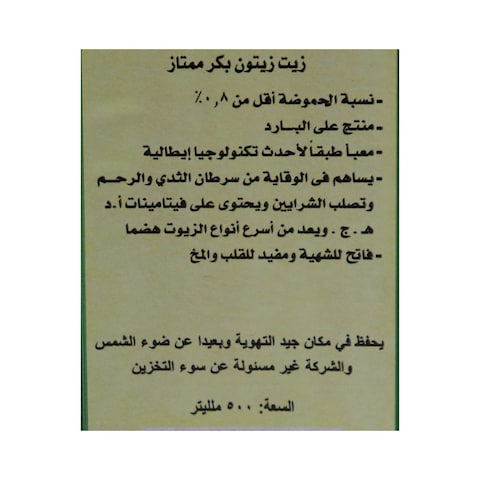 زيت زيتون بكر ممتاز
- نسبة الحموضة أقل من ٠,٨٪
- منتج على البـــارد
- معبأ طبقاً لأحدث تكنولوجيا إيطالية
- يساهم فى الوقاية من سرطان الثدي والرحـــم
وتصلب الشرايين ويحتوى على فيتامينات أ.د
هـ . ج . ويعد من أسرع أنواع الزيوت هضما
- فاتح للشهية ومفيد للقلب والمخ
يحفظ في مكان جيد التهوية وبعيدا عن ضوء الشمس
والشركة غير مسئولة عن سوء التخزين
السعة: ٥٠٠ ملليتر